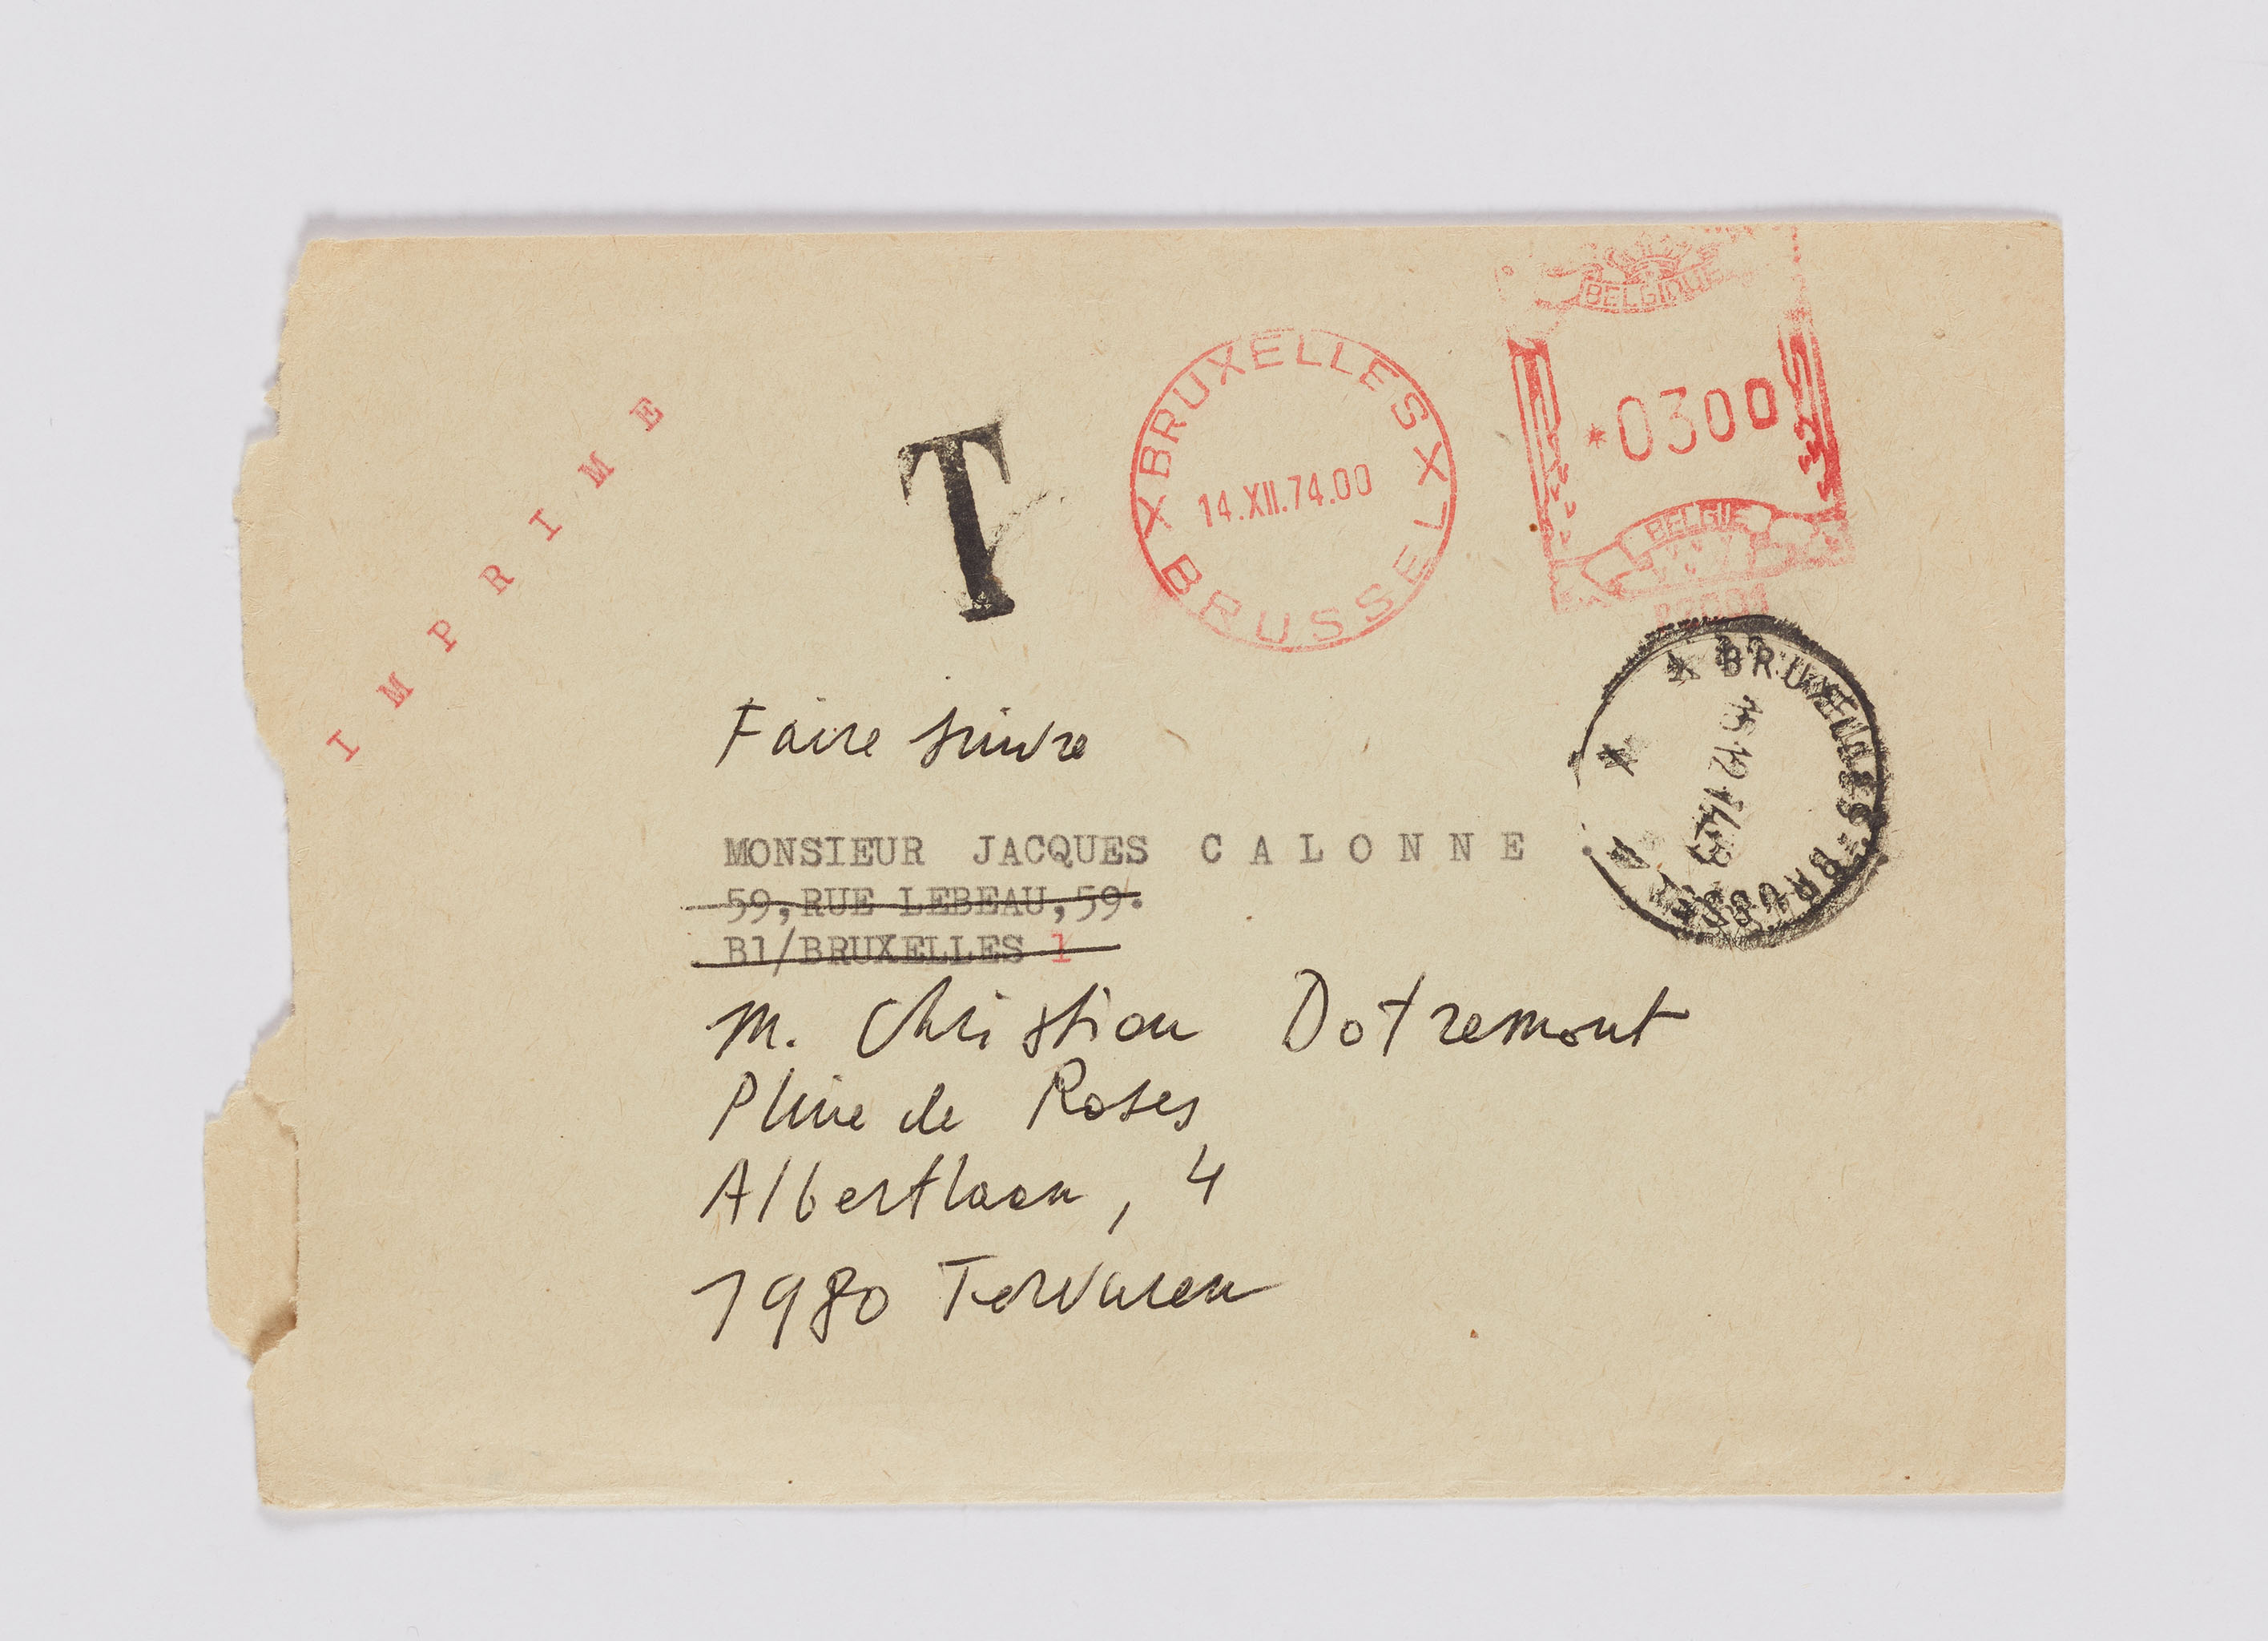 BELGIQUE
*0300
BELGIE
X BRUXELLES X BRUSSEL
14.XII.74.00
I M P R I M E
T
BRUXELLES BRUSSEL
Faire suivre
MONSIEUR JACQUES C A L O N N E .
59,RUE LEBEAU,59.
B1/BRUXELLES 1
M. Christian Dotremont
Pluie de Roses
Albertlaan, 4
1980 Tervuren